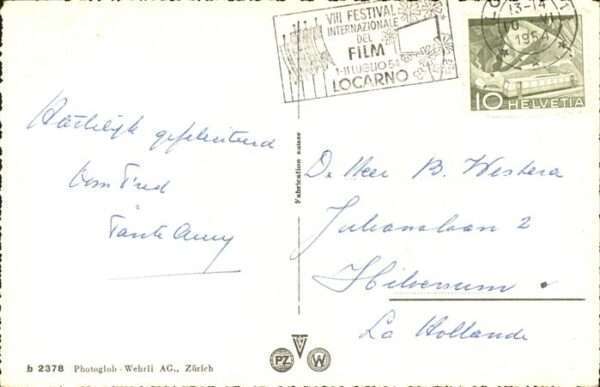 VIII FESTIVAL
INTERNAZIONALE
DEL
FILM
1-11 LUGLIO 54
LOCARNO
13-14
VI
1954
10 HELVETIA
Hartelijk gefeliciteerd
Oom Fred
Tante Anny
Fabrication suisse
De Heer B. Westera
Julianalaan 2
Hilversum
La Hollande
b 2378 Photoglob-Wehrli AG., Zürich
PZ
W